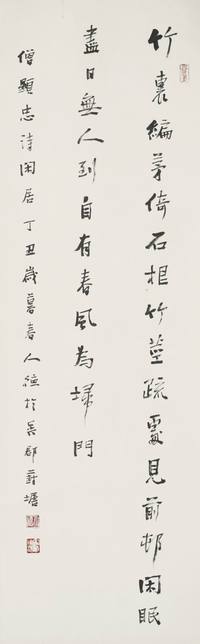 竹裏編茅倚石根竹莖疏處見前邨閑眠
盡日無人到自有春風為埽門
僧顯忠詩閑居丁丑歲暮春人於吳郡葑塘